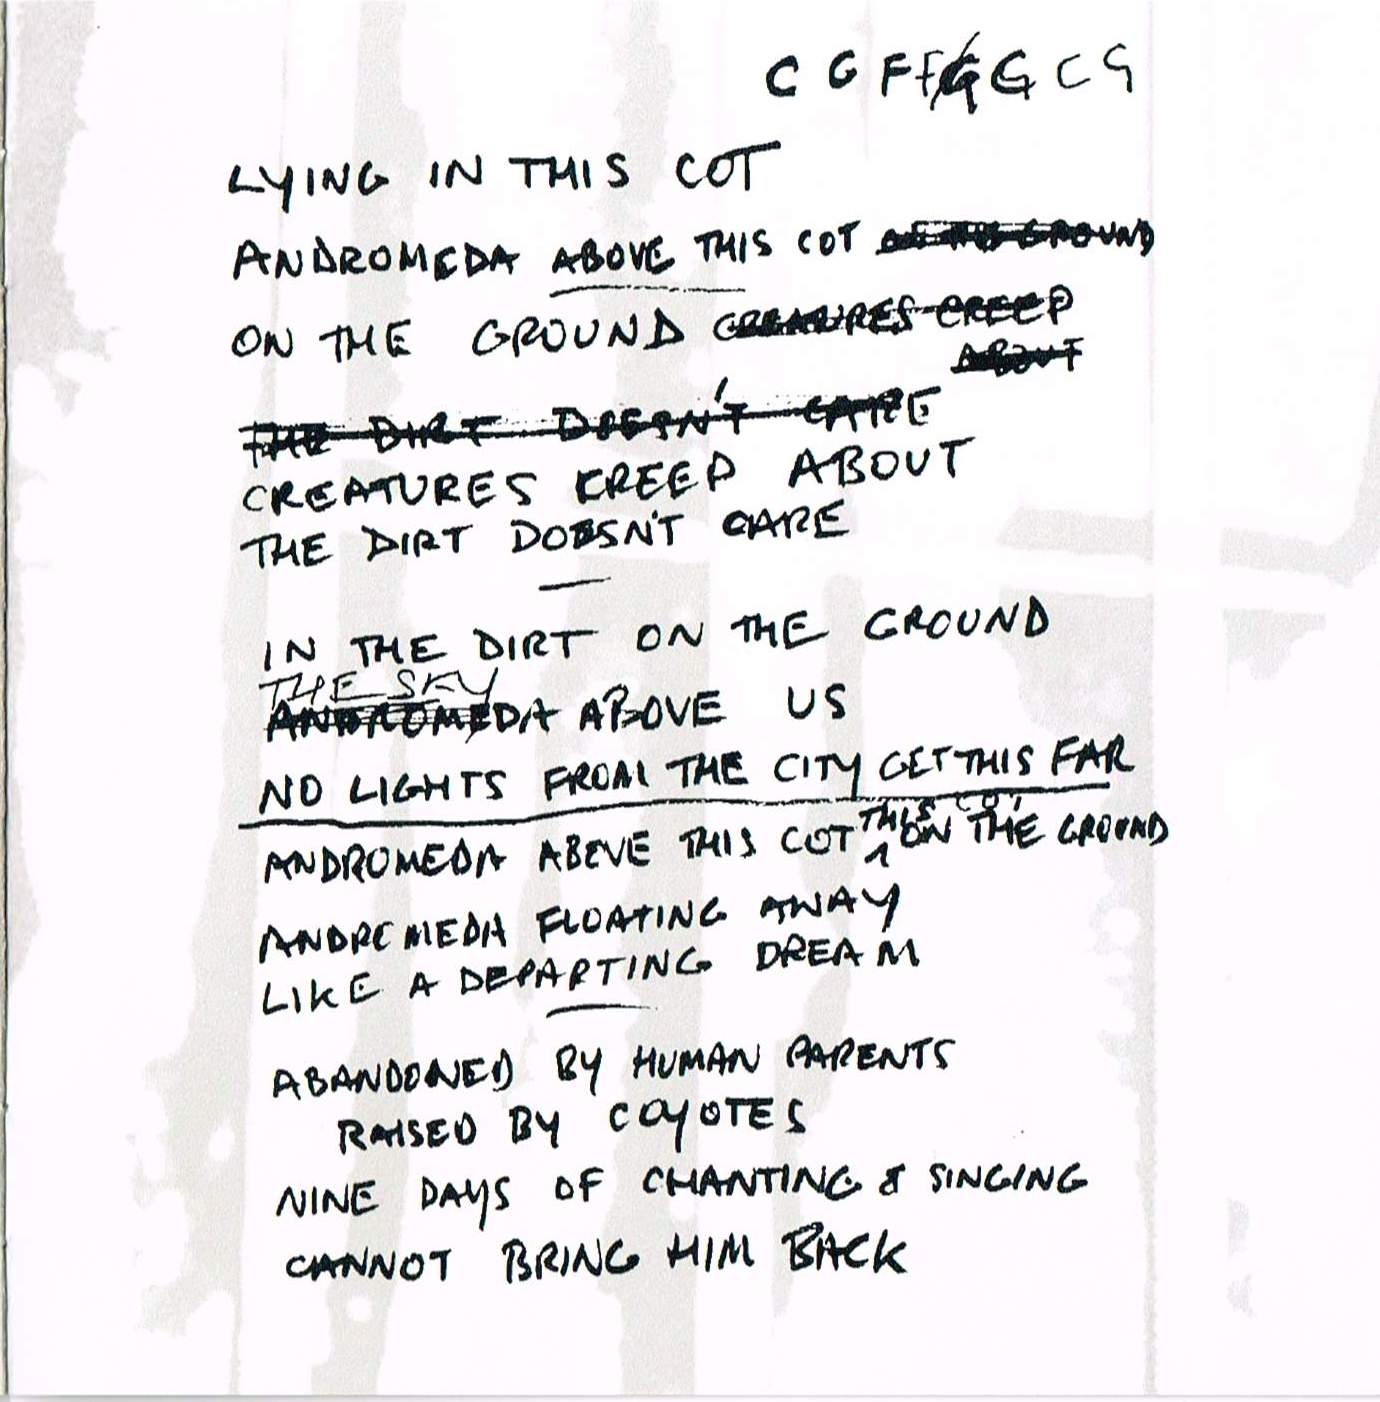 C G F F G G C G
LYING IN THIS COT
ANDROMEDA ABOVE THIS COT ON THE GROUND
ON THE GROUND CREATURES CREEP
ABOUT
THE DIRT DOESN'T CARE
CREATURES CREEP ABOUT
THE DIRT DOESN'T CARE
IN THE DIRT ON THE GROUND
THE SKY
ANDROMEDA ABOVE US
NO LIGHTS FROM THE CITY GET THIS FAR
THIS COT
ANDROMEDA ABOVE THIS COT ON THE GROUND
ANDROMEDA FLOATING AWAY
LIKE A DEPARTING DREAM
ABANDONED BY HUMAN PARENTS
RAISED BY COYOTES
NINE DAYS OF CHANTING & SINGING
CANNOT BRING HIM BACK